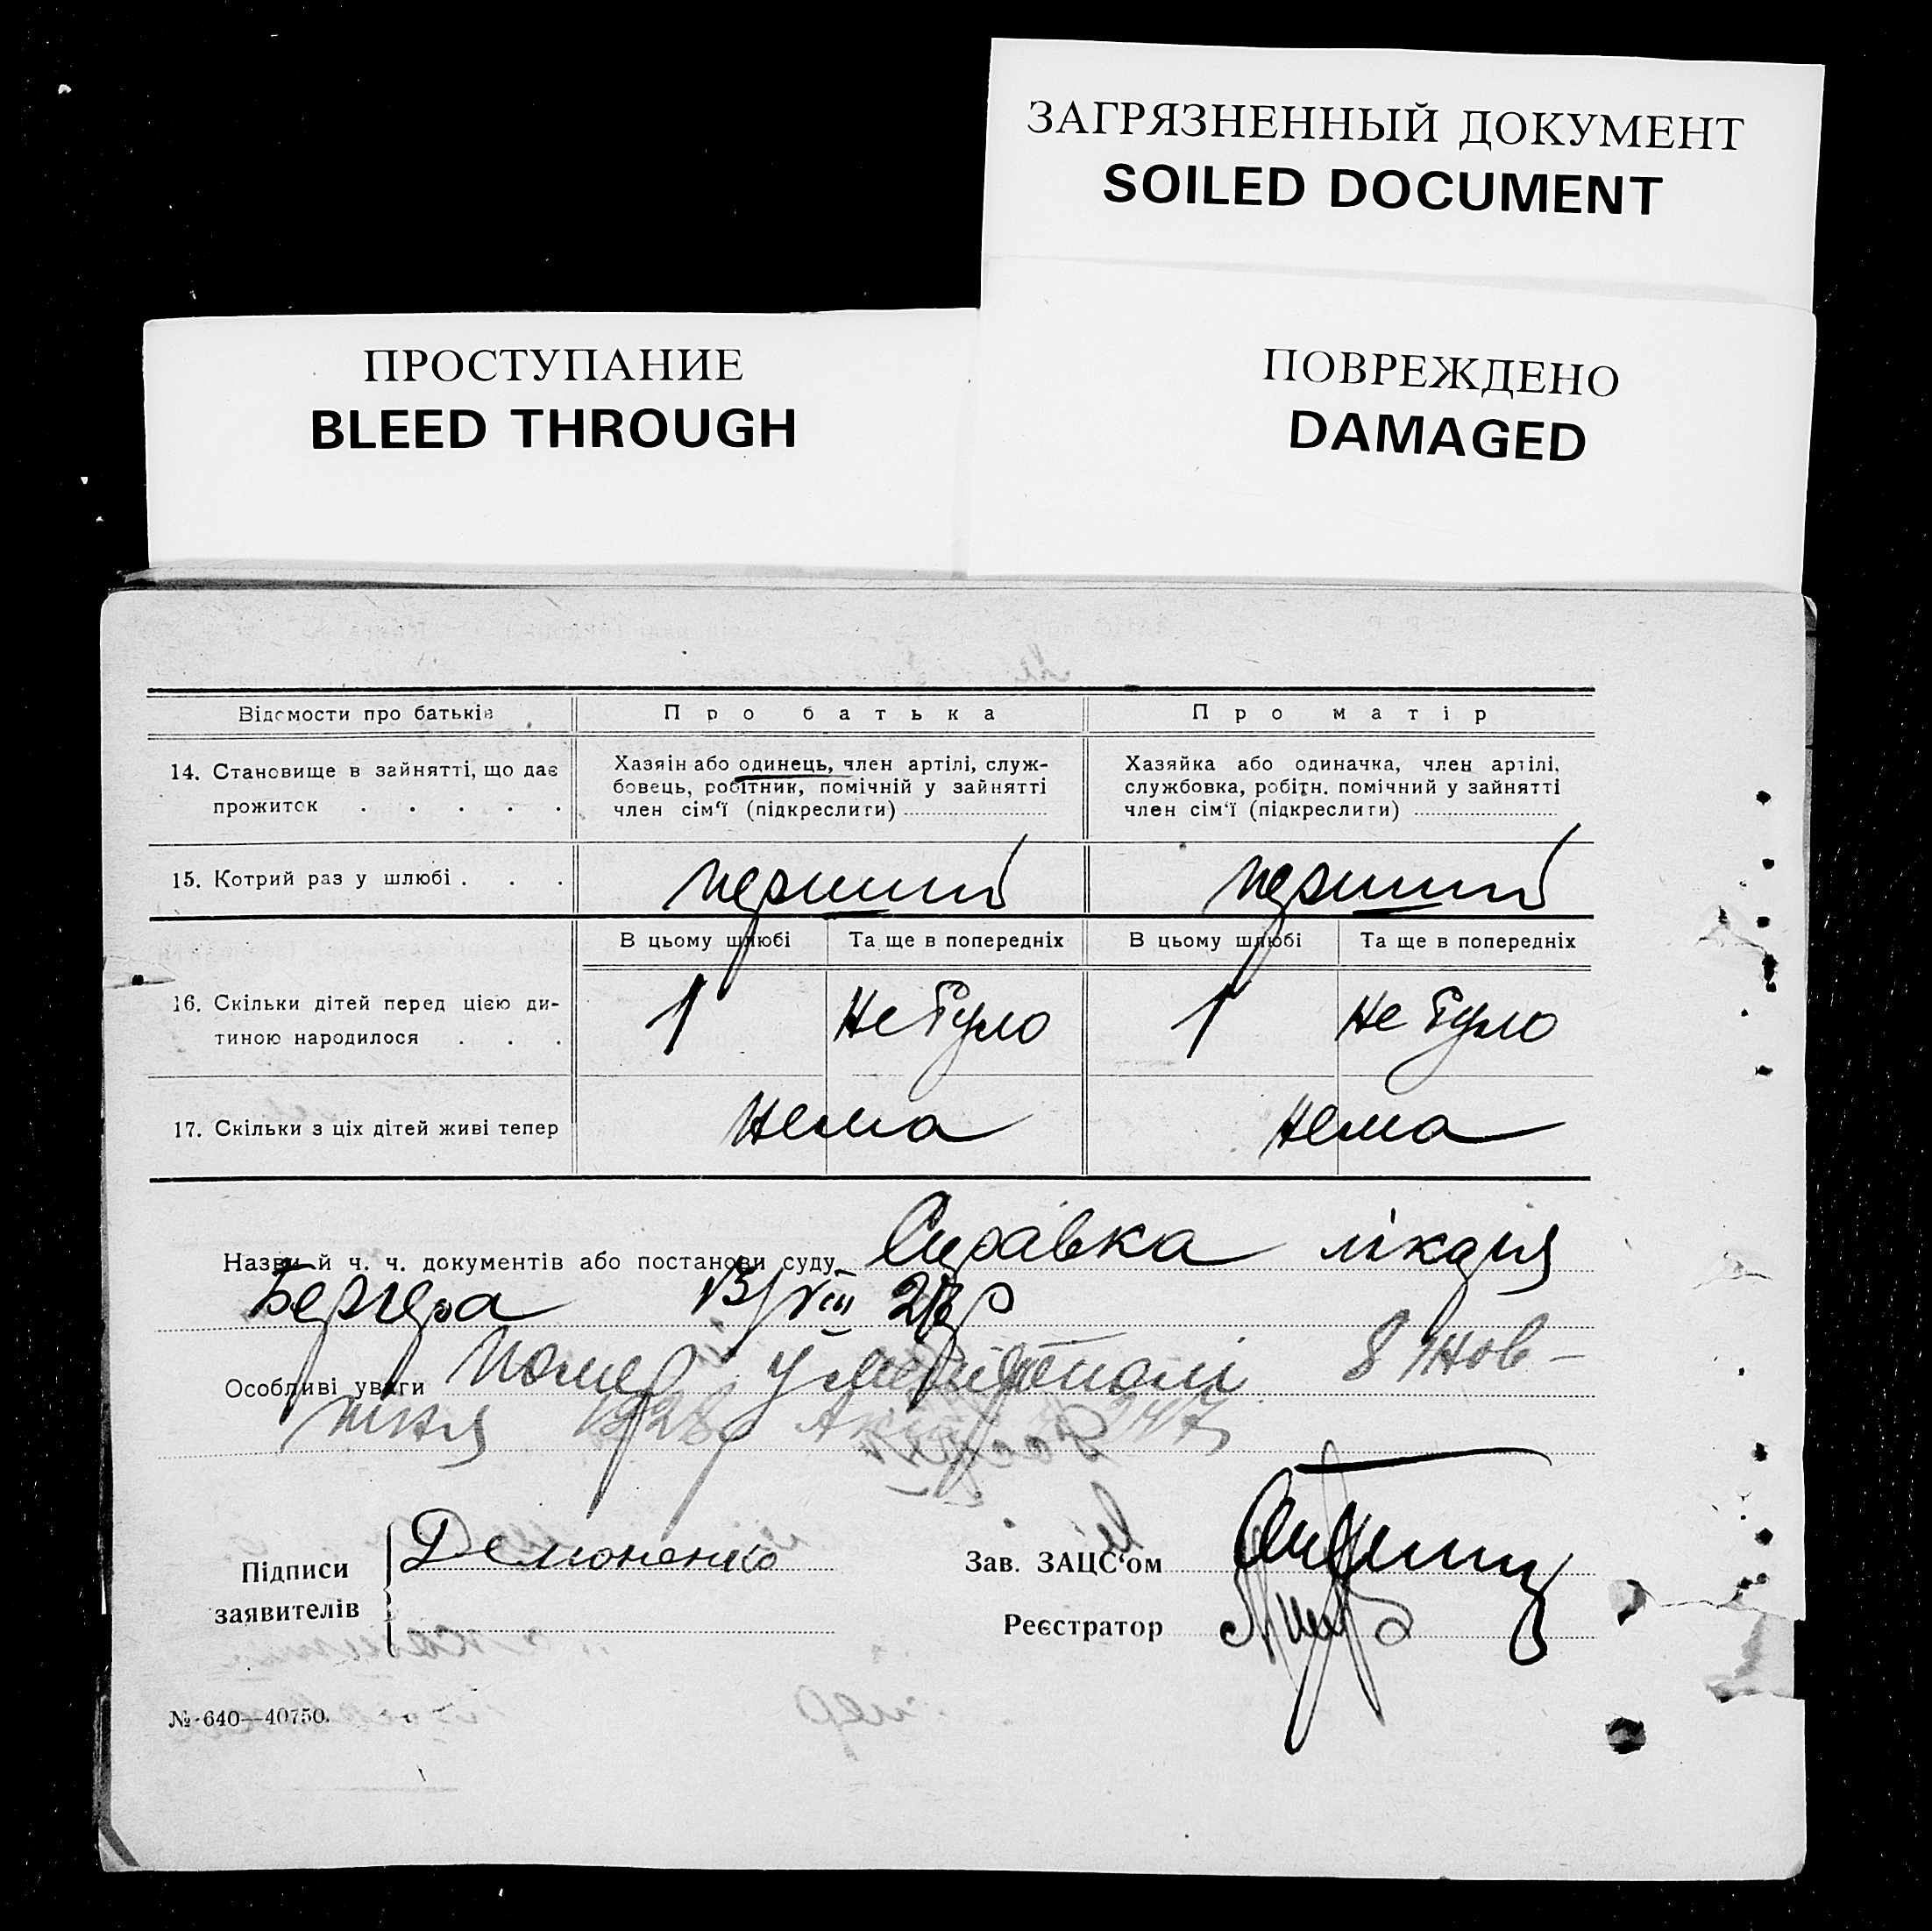 ЗАГРЯЗНЕННЫЙ ДОКУМЕНТ
SOILED DOCUMENT
ПРОСТУПАНИЕ
BLEED THROUGH
ПОВРЕЖДЕНО
DAMAGED
Відомости про батьків
Про батька
Про матір
14. Становище в зайнятті, що дає
прожиток . . . . .
Хазяін або одинець, член артілі, служ-
бовець, робітник, помічній у зайнятті
член сім'ї (підкреслити)
Хазяйка або одиначка, член артілі,
службовка, робітн. помічний у зайнятті
член сім'ї (підкреслити)
15. Котрий раз у шлюбі . . .
перший
перший
В цьому шлюбі
Та ще в попередніх
В цьому шлюбі
Та ще в попередніх
16. Скільки дітей перед цією ди-
тиною народилося . . .
1
Не було
1
Не було
17. Скільки з ціх дітей живі тепер
Нема
Нема
Назви й ч. ч. документів або постанови суду Справка лікаря
Бергера 13/VIII 28 р
Особливі уваги Помер у 8 Жов-
тня 1928 р Акт 247
Підписи
заявителів
Демоненко
Зав. ЗАЦС'ом
Реєстратор
№ 640—40750.